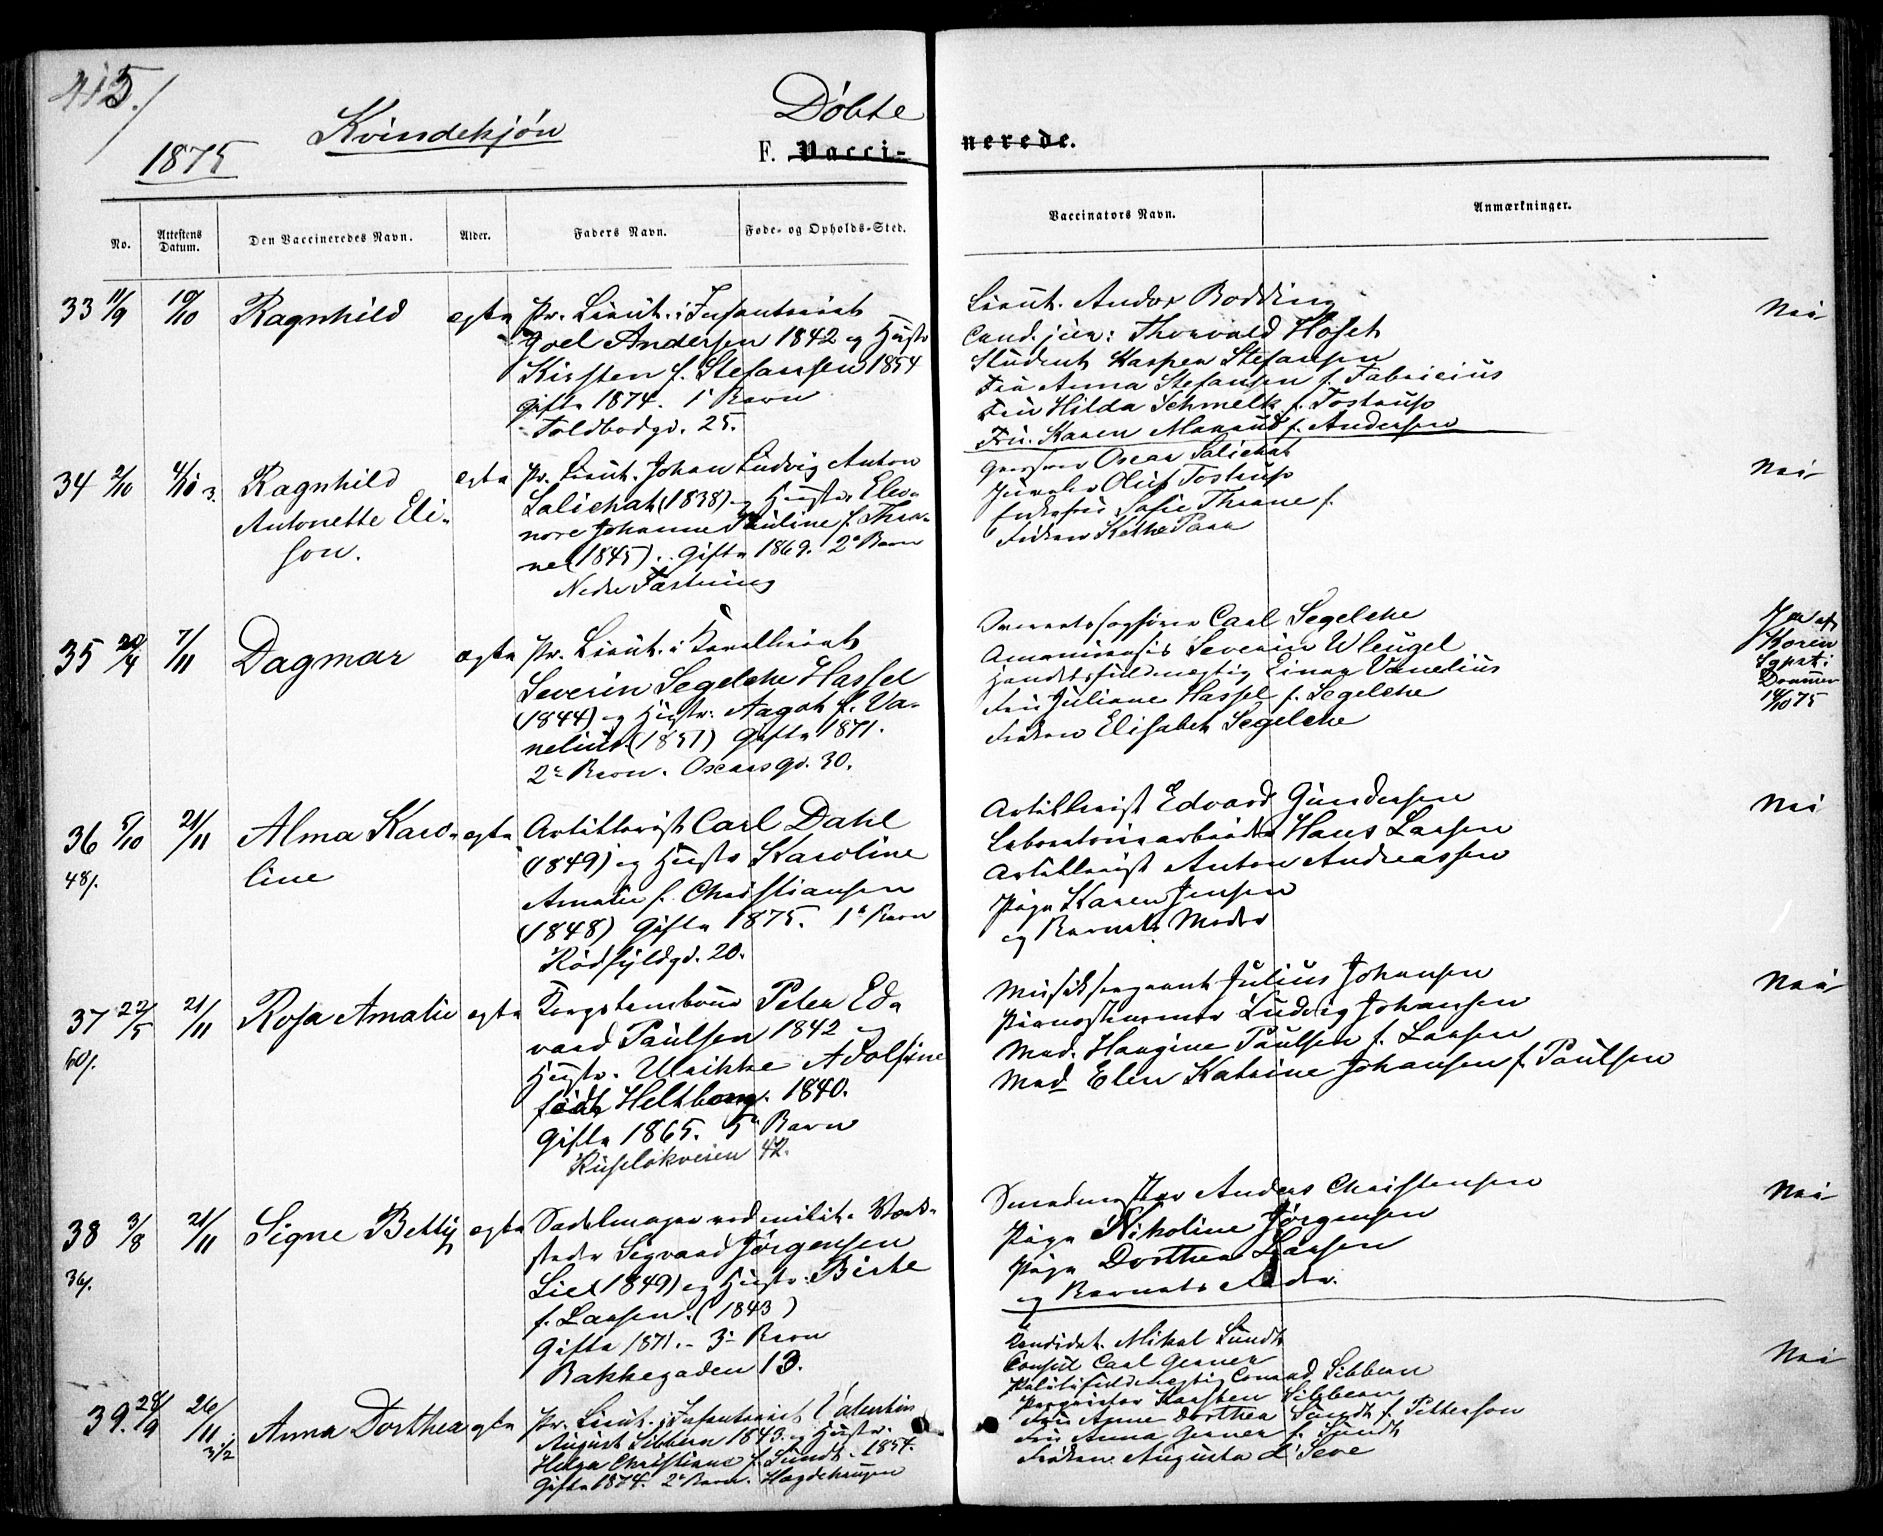 415.
1875
Kvindekjøn
Døbte
F. Vacci-
nerede.
No.
Attestens Datum.
Den Vaccineredes Navn.
Alder.
Faders Navn.
Føde- og Opholds-Sted.
Vaccinators Navn.
Anmærkninger.
33 11/9 10/10 Ragnhild ægte
Pr. Lieut. i Infanteriet
Joel Andersen 1842 og Hustr
Kirsten f. Stefansen 1854
Gifte 1874. 1' Barn
Toldbodgd. 25.
Lieut. Andor Bødding
Cand. jur: Thorvald Høst
Student Kasper Stefansen
Fru Anna Stefansen f. Fabricius
Fru Hilda Schmelk f. Tostrup
Fru. Karen f. Andersen
Nei
34 2/10 4/10 3. Ragnhild ægte
Antonette Eli-
son.
Pr. Lieut. Johan Ludvig Anton
Salichat (1838) og Hustr. Eleo-
nore Johanne Pauline f. Thra-
ne (1845). Gifte 1869. 2' Barn
Nedre Fæstning
Oscar Salichat
Juveler Oluf Tostrup
Sofie Thrane f.
Frøken Käthe
Nei
35 20/4 7/11 Dagmar ægte
Pr. Lieut. i Kavalleriet
Severin Segelcke Hassel
(1844) og Hustr: Aagot f. Va-
nelius (1851) Gifte 1871.
2' Barn. Oscarsgd. 30.
Carl Segelcke
Amanuensis Severin Wleugel
Handelsfuldmægtig Einar Vanelius
Fru Juliane Hassel f. Segelcke
Frøken Elisabet Segelcke
Ja af
Koren
Sgpst i
Drammen
14/10 75
36 5/10 21/11 Alma Karo- ægte
48/.
line
Artillerist Carl Dahl
(1849) og Hustr Karoline
Amalie f. Christiansen
(1848) Gifte 1875. 1' Barn
Rødfyldgd. 20.
Artillerist Edvard Gundersen
Laboratoriearbeider Hans Larsen
Artillerist Anton Andreassen
Pige Karen Jensen
og Barnets Moder
Nei
37 22/5 21/11 Rosa Amalie ægte
50/.
Korpstambour Peter Ed-
vard Paulsen 1842 og
Hustr. Ulrikke Adolfine
født Heltberg. 1840.
Gifte 1865. 5' Barn
Ruseløkveien 42.
Musiksergeant Julius Johansen
Pianostemmer Ludvig Johansen
Mad. Hangine Paulsen f. Larsen
Mad Elen Katrine Johansen f. Paulsen
Nei
38 3/8 21/11 Signe Betty ægte
36/.
Sadelmager ved milit. Værk-
steder Sigvard Jørgensen
Lie (1849) og Hustr: Birte
f. Larsen. (1843)
Gifte 1871.- 3' Barn
Bakkegaden 13.
Smedmester Anders Christensen
Pige Nikoline Jørgensen
Pige Dorthea Larsen
og Barnets Moder.
Nei
39. 28/9 26/11 3 1/2 Anna Dorthea ægte
Pr. Lieut. i Infanteriet Valentin
August Sibbern 1843. og Hustr.
Helga Christiane f. Sundt. 1854.
Gifte 1874. 2' Barn. Hægdehaugen
Kandidat. Mikal Sundt
Consul Carl Gerner
Politifuldmægtig Conrad Sibbern
Proprietær Karsten Sibbern
Fru Anne Dorthea Sundt f. Petterson
Fru Anna Gerner f. Sundt
Frøken Augusta d'Seve
Nei